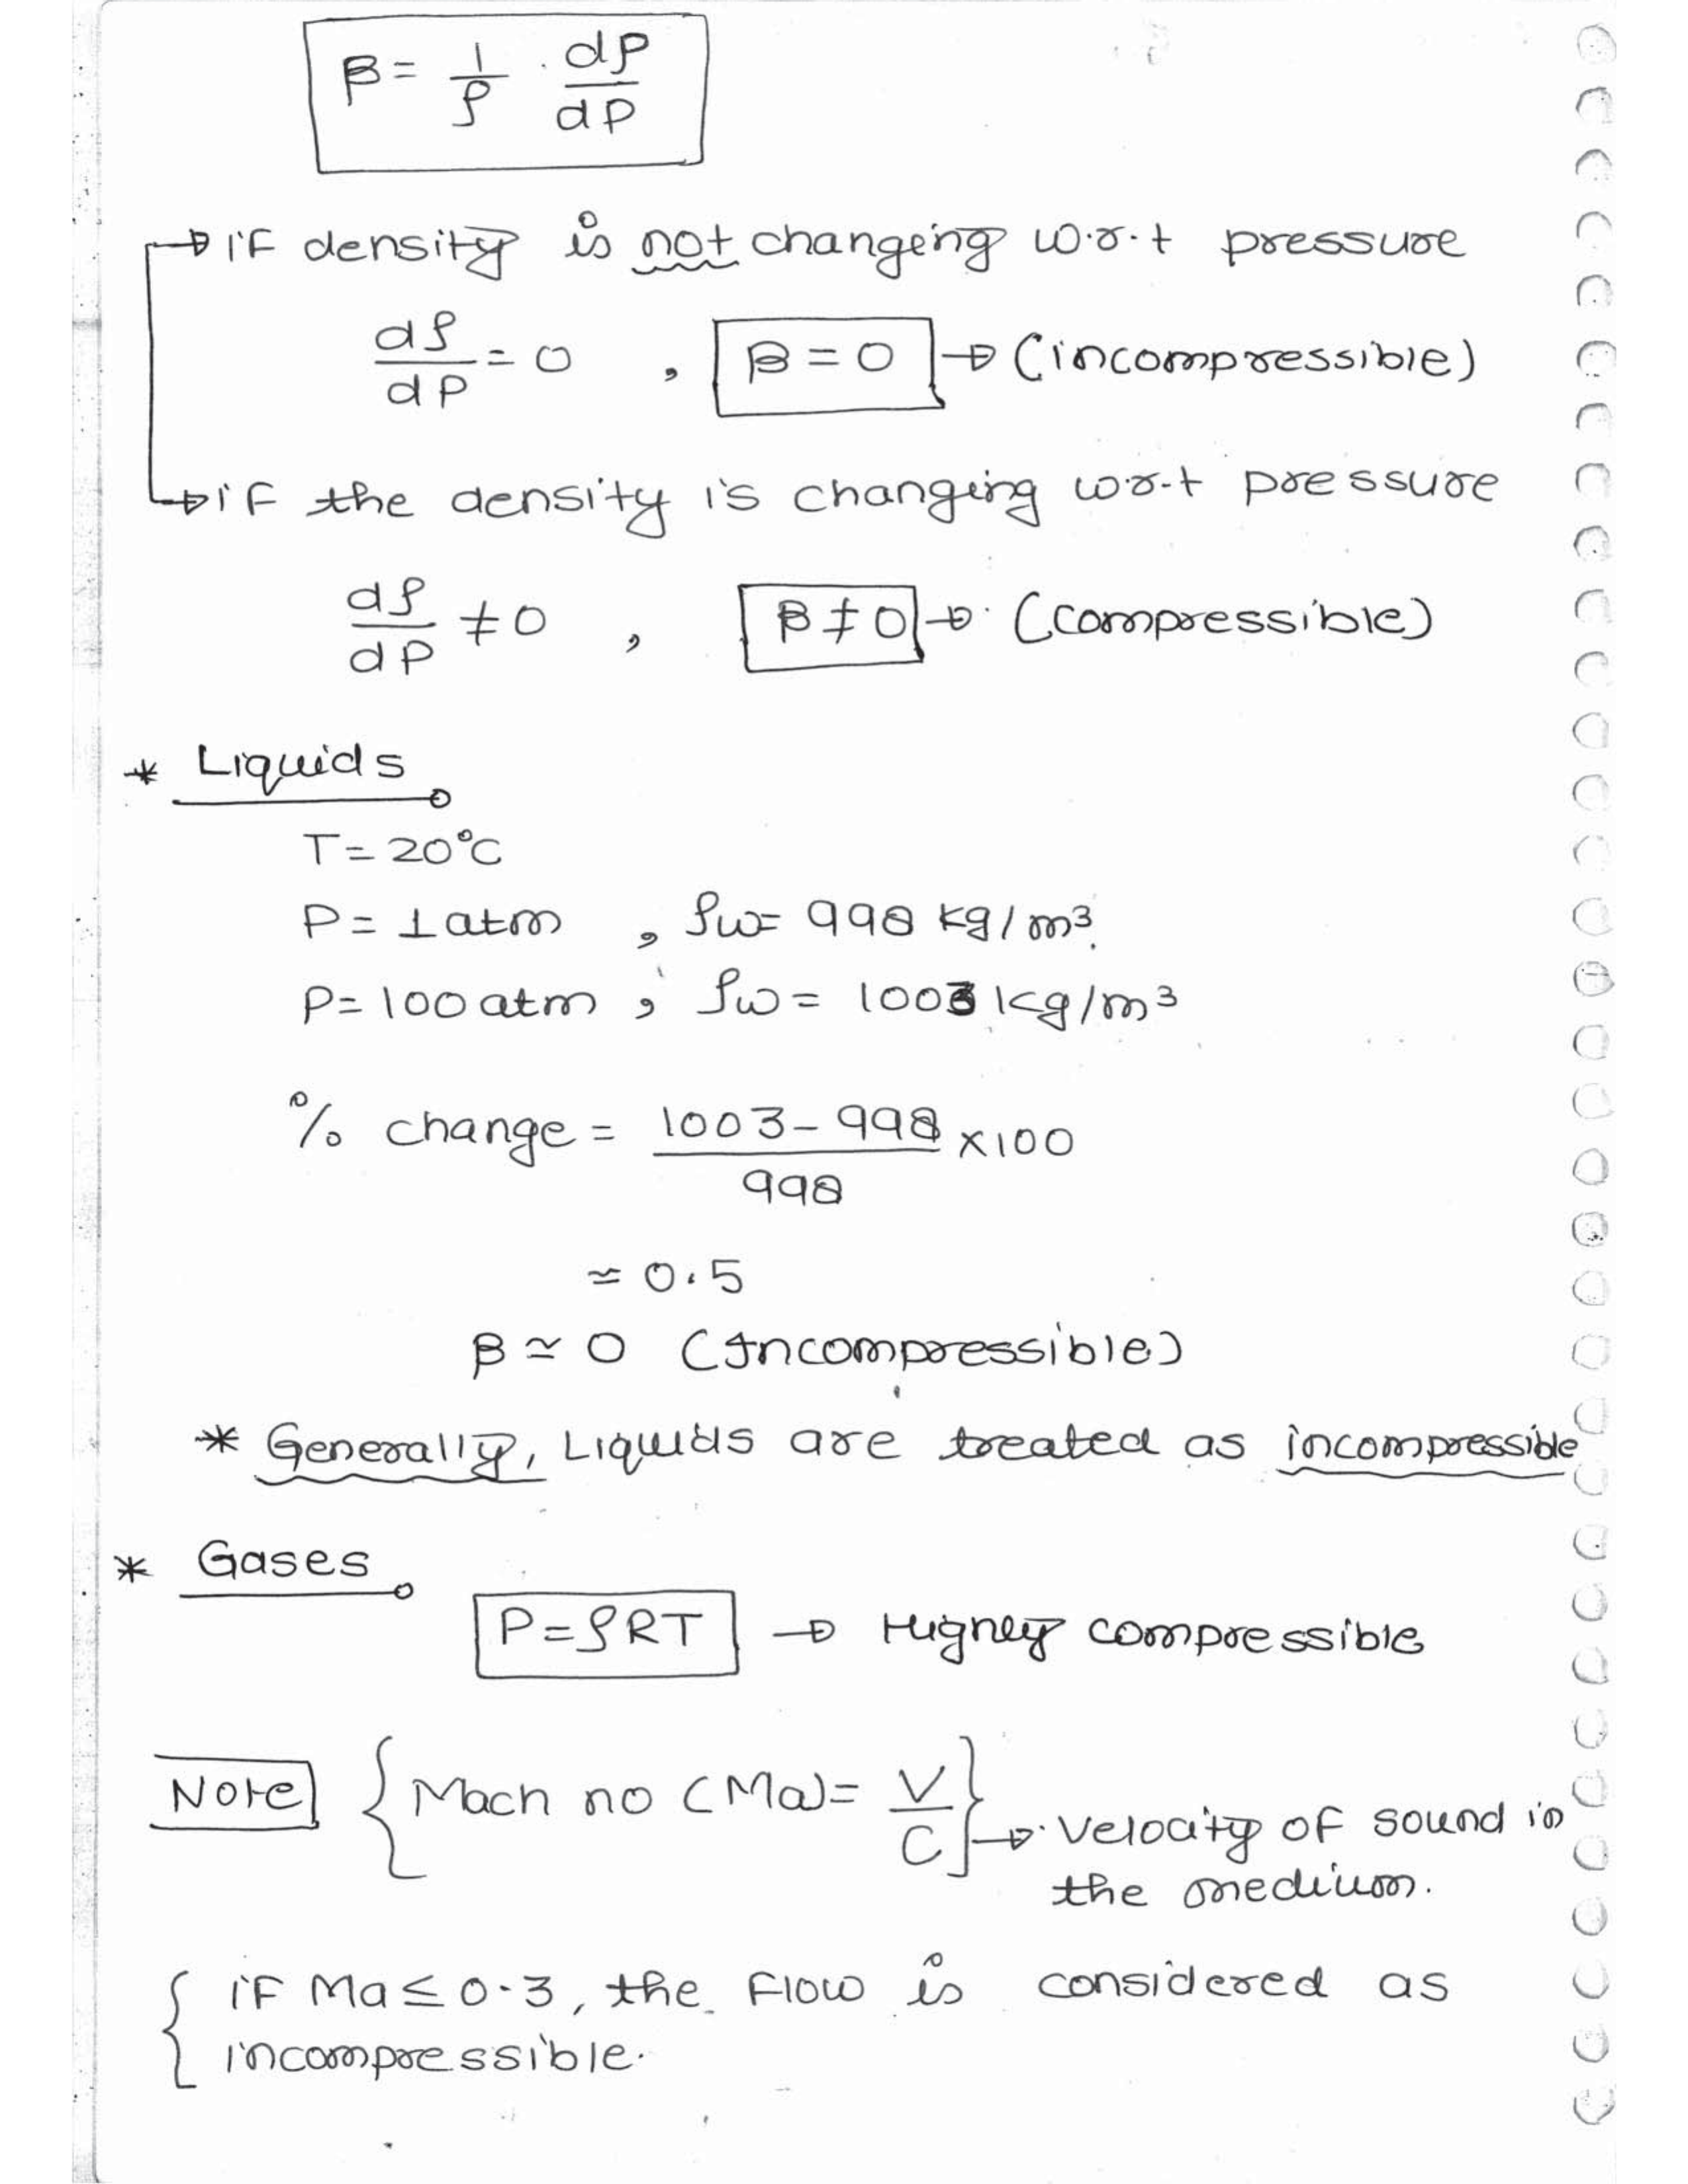 β = 1/ρ . dρ/dP
→ if density is not changeing w.r.t pressure
dρ/dP = 0 , β = 0 → (incompressible)
→ if the density is changing w.r.t pressure
dρ/dP ≠ 0 , β ≠ 0 → (compressible)
* Liquids
T = 20°C
P = 1 atm , ρw = 998 kg/m³
P = 100 atm , ρw = 1003 kg/m³
% change = 1003 - 998 / 998 × 100
≃ 0.5
β ≃ 0 (Incompressible)
* Generally, Liquids are treated as incompressible
* Gases
P = ρRT → Highey compressible
Note { Mach no (Ma) = V/C } → Velocity of sound in
the medium.
{ if Ma ≤ 0.3, the flow is considered as
incompressible.